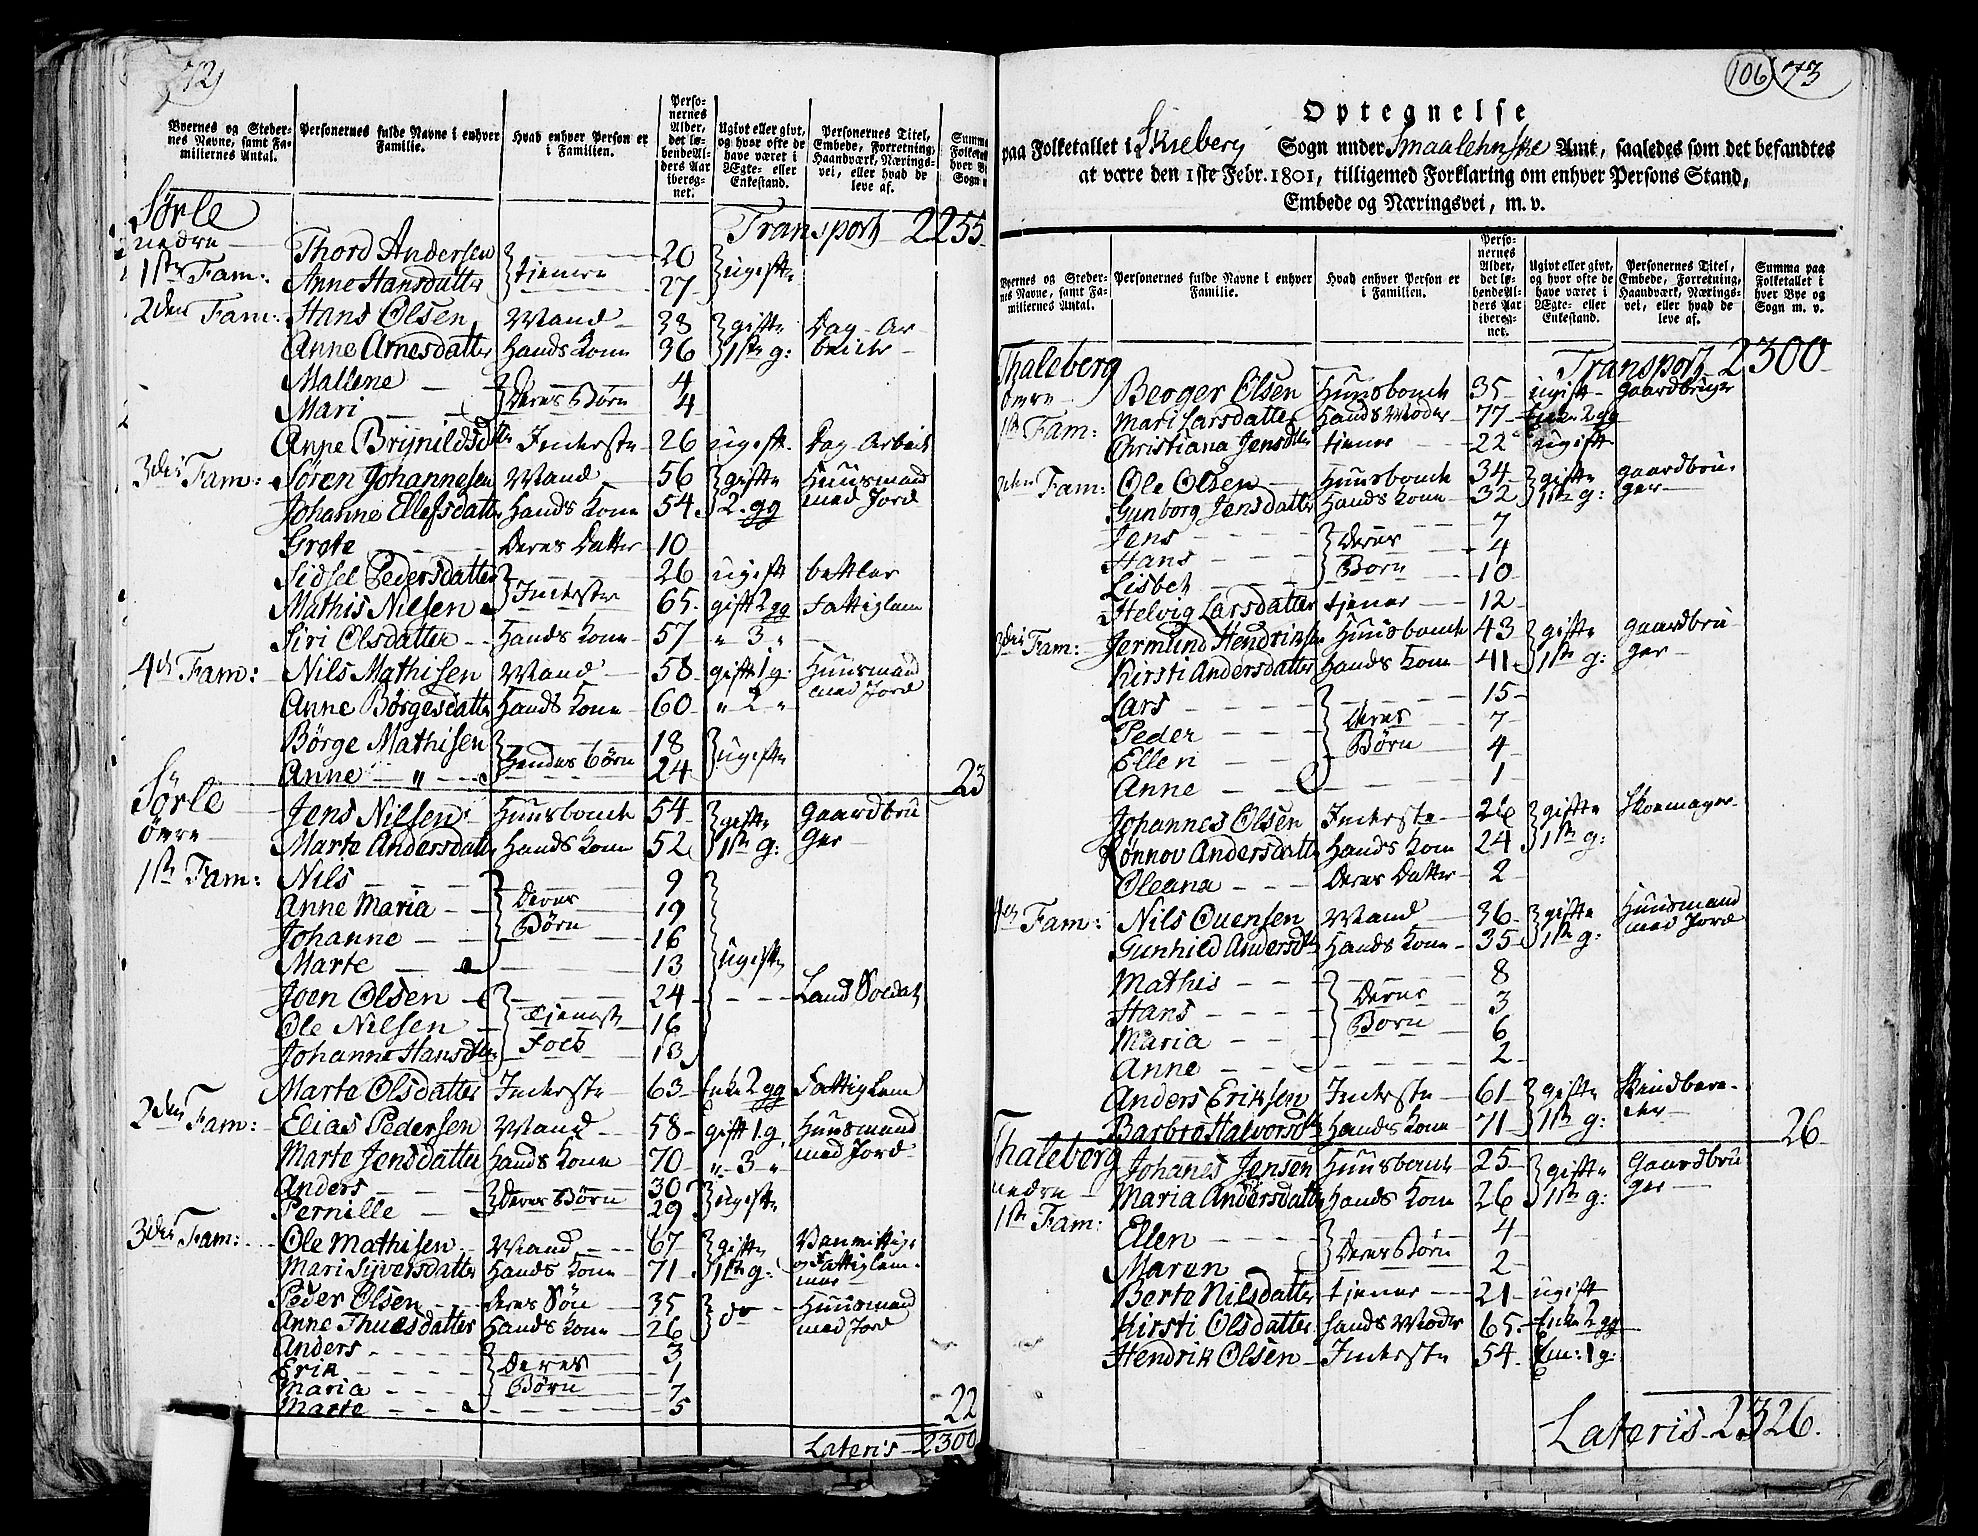 72)
Byernes og Stedernes Navne, samt Familiernes Antal.
Personernes fulde Navne i enhver Familie.
Hvad enhver Person er i Familien.
Personernes Alder, det løbende Alders Aar iberegnet.
Ugivt eller givt, og hvor ofte de have været i Ægte- eller Enkestand.
Personernes Titel, Embede, Forretning, Haandværk, Næringsvei, eller hvad de leve af.
Sørle Transport 2255
nedre Thord Andersen } tienere 20 } ugifte
1ste Fam: Anne Hansdatter 27
2den Fam: Hans Olsen Mand 38 } gifte Dag-Ar-
Anne Arnesdatter Hands Kone 36 } 1ste g: beider
Mallene } Deres Børn 4
Mari 4
Anne Brynildsdtr Inderste 26 ugift Dag-Arbeid
3die Fam: Søren Johannesen Mand 56 } gifte Huusmand
Johanne Ellefsdatter Hands Kone 54 } 2. gg med Jord
Grete Deres Datter 10
Sidsel Pedersdatter } Inderster 26 ugift betler
Mathis Nilsen 65 gift 2 gg Fattiglem
Siri Olsdatter Hands Kone 57 " 3 "
4de Fam: Nils Mathisen Mand 58 gift 1 g: Huusmand
Anne Børgesdatter Hands Kone 60 " 2 " med Jord
Børge Mathisen } Hendes børn 18 } ugifte
Anne " 24
23
Sørle Jens Nilsen Huusbonde 54 } gifte Gaardbru
Øvre Marte Andersdatter Hands Kone 52 } 1ste g: ger
1ste Fam: Nils } Deres 9
Anne Maria Børn 19
Johanne 16 } ugifte
Marte 13
Joen Olsen } Tjeneste 24 Land Soldat
Ole Nilsen Folk 16
Johanne Hansdtr 13
Marte Olsdatter Inderste 63 Enke 2 gg Fattiglem
2den Fam: Elias Pedersen Mand 58 gift 1 g. Huusmand
Marte Jensdatter Hands Kone 70 " 3 " med Jord
Anders } Deres Børn 30 } ugifte
Pernille 29
3die Fam: Ole Mathisen Mand 67 } gifte Vanvittige
Mari Syversdatter Hands Kone 71 } 1ste g: og Fattiglem-
mer
Peder Olsen deres Søn 35 } do Huusmand
Anne Thuesdatter Hands Kone 26 med Jord
Anders } Deres 3
Erik Børn 1
Maria 7
Marte 5 22
Lateris 2300
106 73
Optegnelse
paa Folketallet i Skieberg Sogn under Smaalehnske Amt, saaledes som det befandtes
at være den 1ste Febr. 1801, tilligemed Forklaring om enhver Persons Stand,
Embede og Næringsvei, m. v.
Byernes og Stedernes Navne, samt Familiernes Antal.
Personernes fulde Navne i enhver Familie.
Hvad enhver Person er i Familien.
Personernes Alder, det løbende Alders Aar iberegnet.
Ugivt eller givt, og hvor ofte de have været i Ægte- eller Enkestand.
Personernes Titel, Embede, Forretning, Haandværk, Næringsvei, eller hvad de leve af.
Summa paa Folketallet i hver Bye og Sogn m. v.
Thaleberg Transport 2300
øvre Beoger Olsen Huusbonde 35 ugift gaardbruger
1ste Fam: Mari Larsdatter Hands Moder 77 Enke 2 gg
Christiana Jensdtr tjener 22 ugift
2den Fam: Ole Olsen Huusbonde 34 } gifte gaardbru-
Gunborg Jensdatter Hands Kone 32 } 1ste g: ger
Jens } Deres 7
Hans Børn 4
Lisbet 10
Helvig Larsdatter tjener 12
3die Fam: Jermund Hendriksen Huusbonde 43 } gifte gaardbru
Kirsti Andersdatter Hands Kone 41 } 1ste g: ger
Lars } 15
Peder Deres 7
Ellen Børn 4
Anne 1
Johannes Olsen Inderste 26 } gifte Skoemager
Rønnov Andersdatter Hands Kone 24 } 1ste g:
Oleana Deres Datter 2
4de Fam: Nils Ouensen Mand 36 } gifte Huusmand
Gunhild Andersdtr Hands Kone 35 } 1ste g: med Jord
Mathis } 8
Hans Deres 3
Maria Børn 6
Anne 2
Anders Eriksen Inderste 61 } gifte Skindbere-
Barbro Halvorsdtr Hands Kone 71 } 1ste g: der
26
Thaleberg Johanes Jensen Huusbonde 25 } gifte Gaardbru
nedre Maria Andersdatter Hands Kone 26 } 1ste g: ger
1ste Fam: Ellen } Deres Børn 4
Maren 2
Berte Nilsdatter tjener 21 ugift
Kirsti Olsdatter hands Moder 65 Enke 2 gg
Hendrik Olsen Inderste 54 Enk: 1 g:
Lateris 2326.